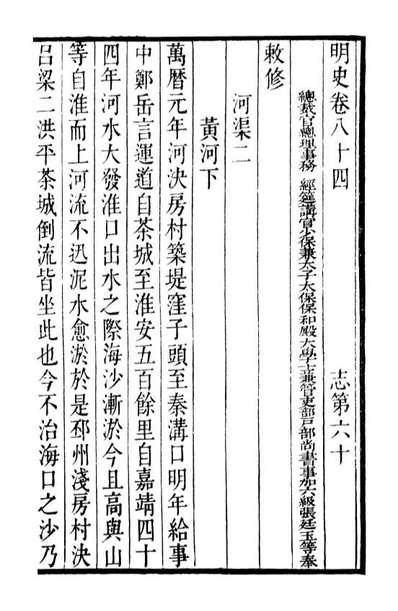 明史卷八十四　志第六十
總裁官總理事務　經筵講官少保兼太子太保保和殿大學士兼管吏部戶部尚書事加六級張廷玉等奉
敕修
河渠二
黃河下
萬曆元年河決房村築堤窪子頭至秦溝口明年給事
中鄭岳言運道自茶城至淮安五百餘里自嘉靖四十
四年河水大發淮口出水之際海沙漸淤今且高與山
等自淮而上河流不迅泥水愈淤於是邳州淺房村決
呂梁二洪平茶城倒流皆坐此也今不治海口之沙乃